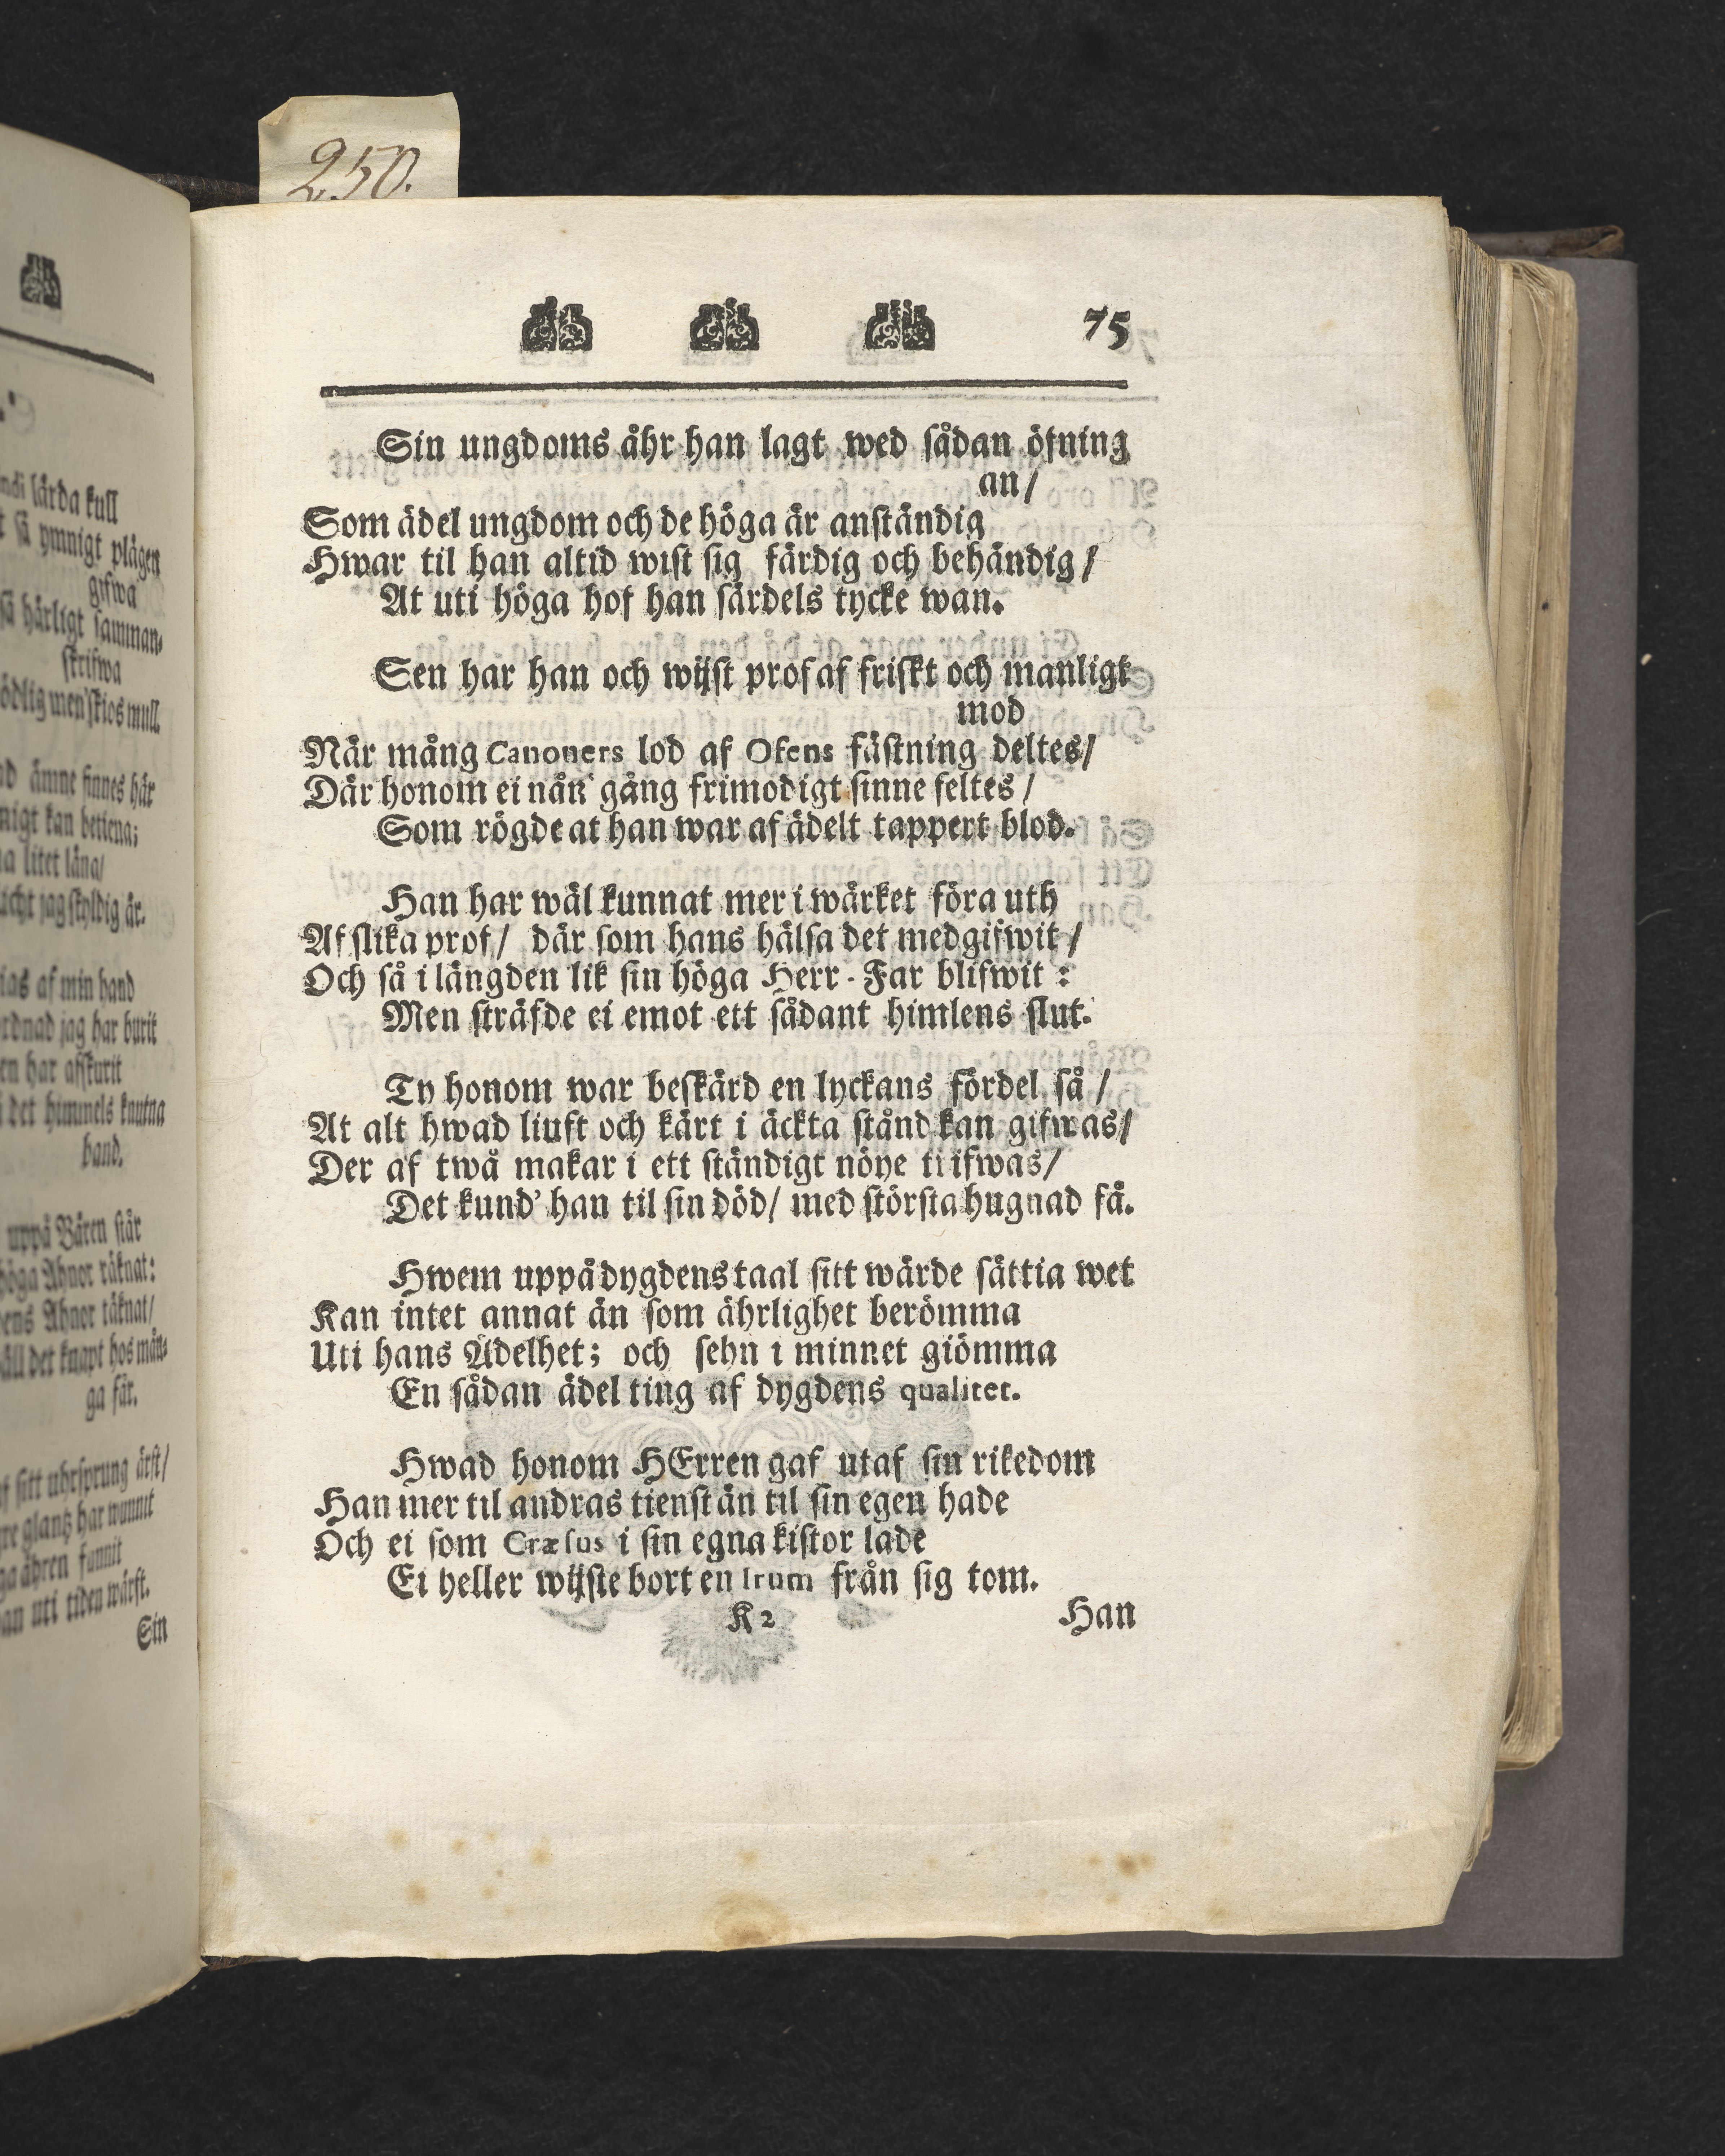 250.
75
Sin ungdoms åhr han lagt wed sådan öfning
an/
Som ädel ungdom och de höga är anständig
Hwar til han altid wist sig färdig och behändig/
At uti höga hof han särdels tycke wan.
Sen har han och wijst prof af friskt och manligt
mod
När mång Canoners lod af Ofens fästning deltes/
Där honom ei nån gång frimodigt sinne feltes/
Som rögde at han war af ädelt tappert blod.
Han har wäl kunnat mer i wärket föra uth
Af slika prof/ där som hans hälsa det medgifwit/
Och så i längden lik sin höga Herr-Far blifwit:
Men sträfde ei emot ett sådant himlens slut.
Ty honom war beskärd en lyckans fördel så/
At alt hwad liuft och kärt i äckta stånd kan gifwas/
Der af twå makar i ett ständigt nöye triifwas/
Det kund' han til sin död/ med största hugnad få.
Hwem uppå dygdens taal sitt wärde sättia wet
Kan intet annat än som ährlighet berömma
Uti hans Ädelhet; och sehn i minnet giömma
En sådan ädel ting af dygdens qualitet.
Hwad honom HErren gaf utaf sin rikedom
Han mer til andras tienst än til sin egen hade
Och ei som Cræsus i sin egna kistor lade
Ei heller wijste bort en Irum från sig tom.
K 2
Han
lärda kull
så ymnigt plägen
gifwa
så härligt samman-
skrifwa
ödlig men'skios mull.
ämne finnes här
kan betiena;
litet låna/
jag skyldig är.
af min hand
jag har burit
har afskurit
det himmels knutna
band.
uppå Båren står
höga Ahnor räknat:
Ahnor täknat/
det knapt hos mån-
ga får.
sitt uhrsprung ärft/
glantz har wunnit
ähren funnit
uti tiden wärft.
Sin